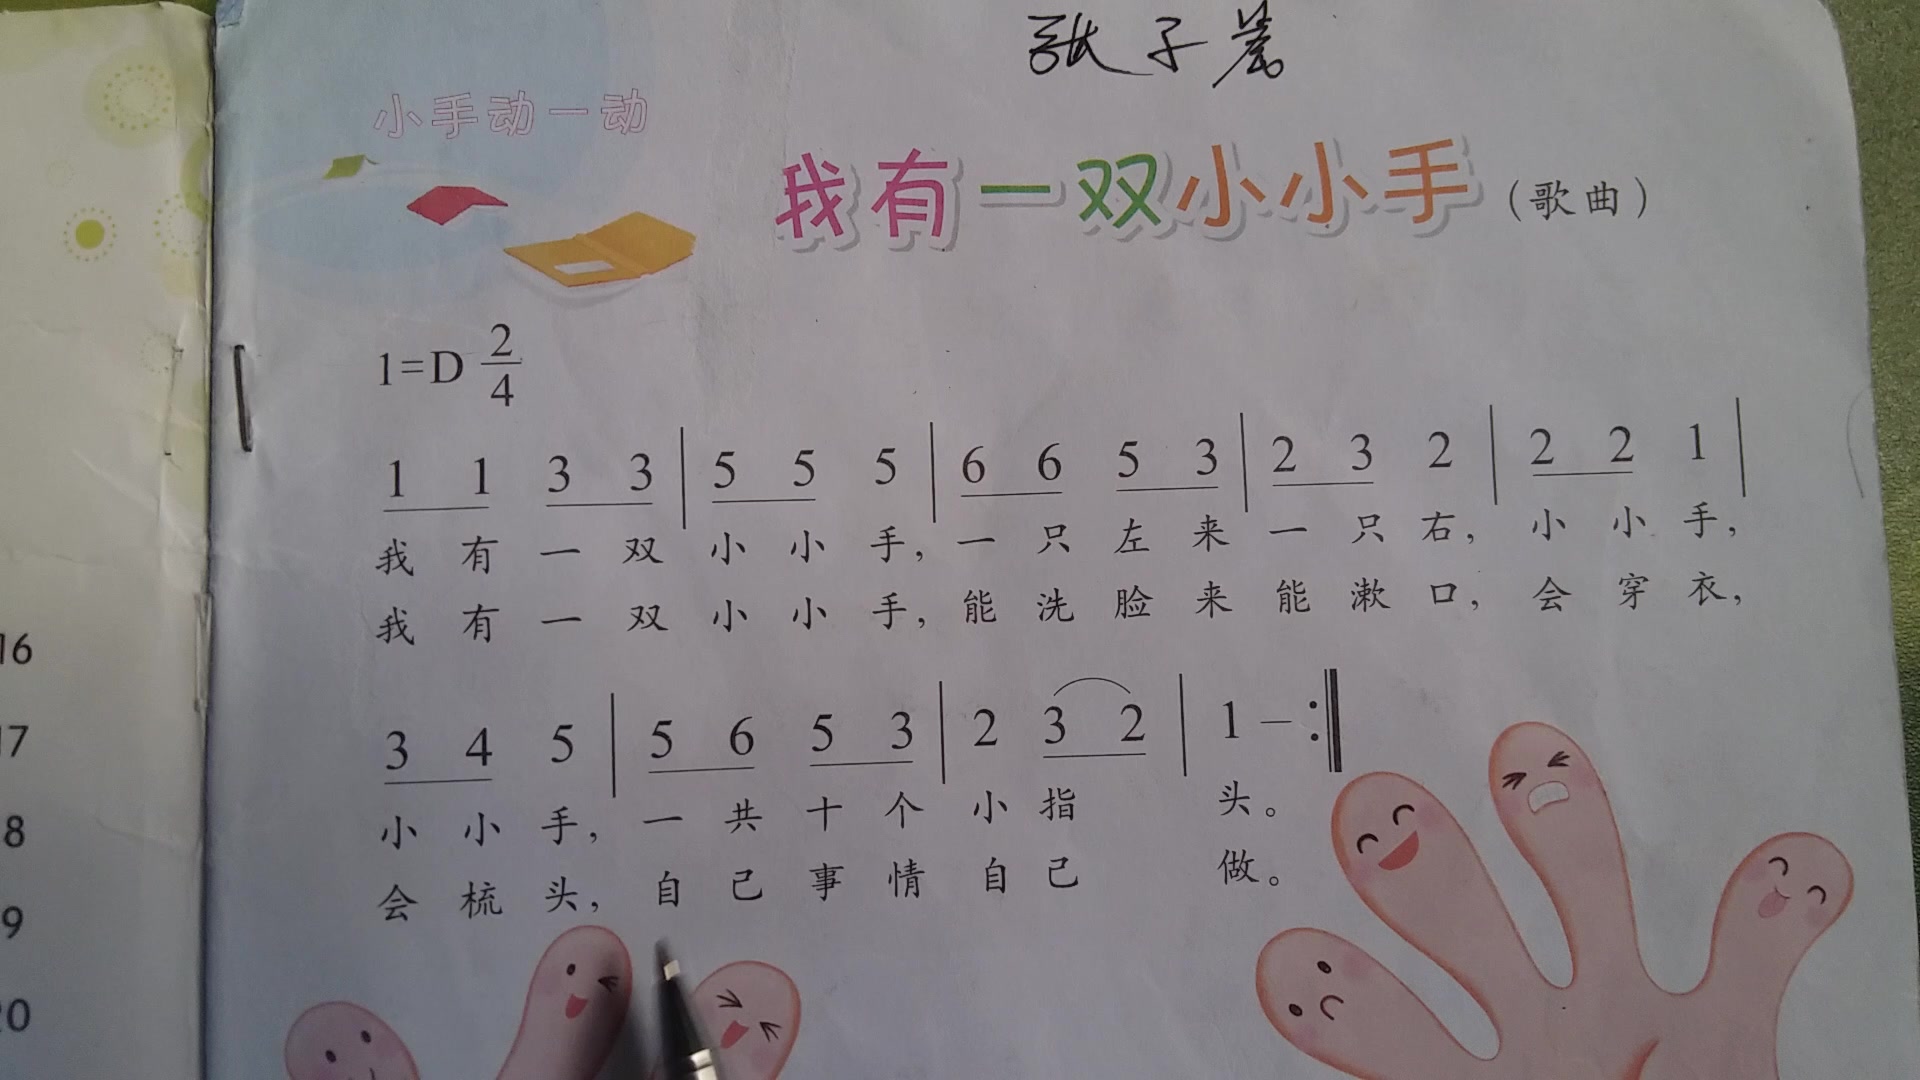 张子
小手动一动
我有一双小小手（歌曲）
1=D 2/4
1 1 3 3 | 5 5 5 | 6 6 5 3 | 2 3 2 | 2 2 1 |
我有一双小小手，一只左来一只右，小小手，
我有一双小小手，能洗脸来能漱口，会穿衣，
3 4 5 | 5 6 5 3 | 2 3 2 | 1 – :‖
小小手，一共十个小指头。
会梳头，自己事情自己做。
16
17
8
9
20